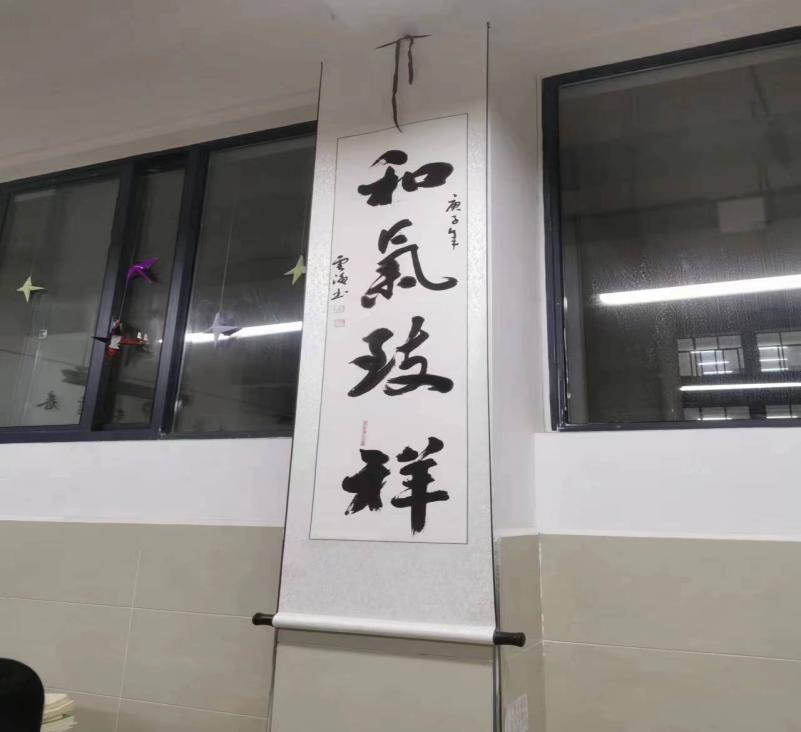 和氣致祥
庚子年
雲海书